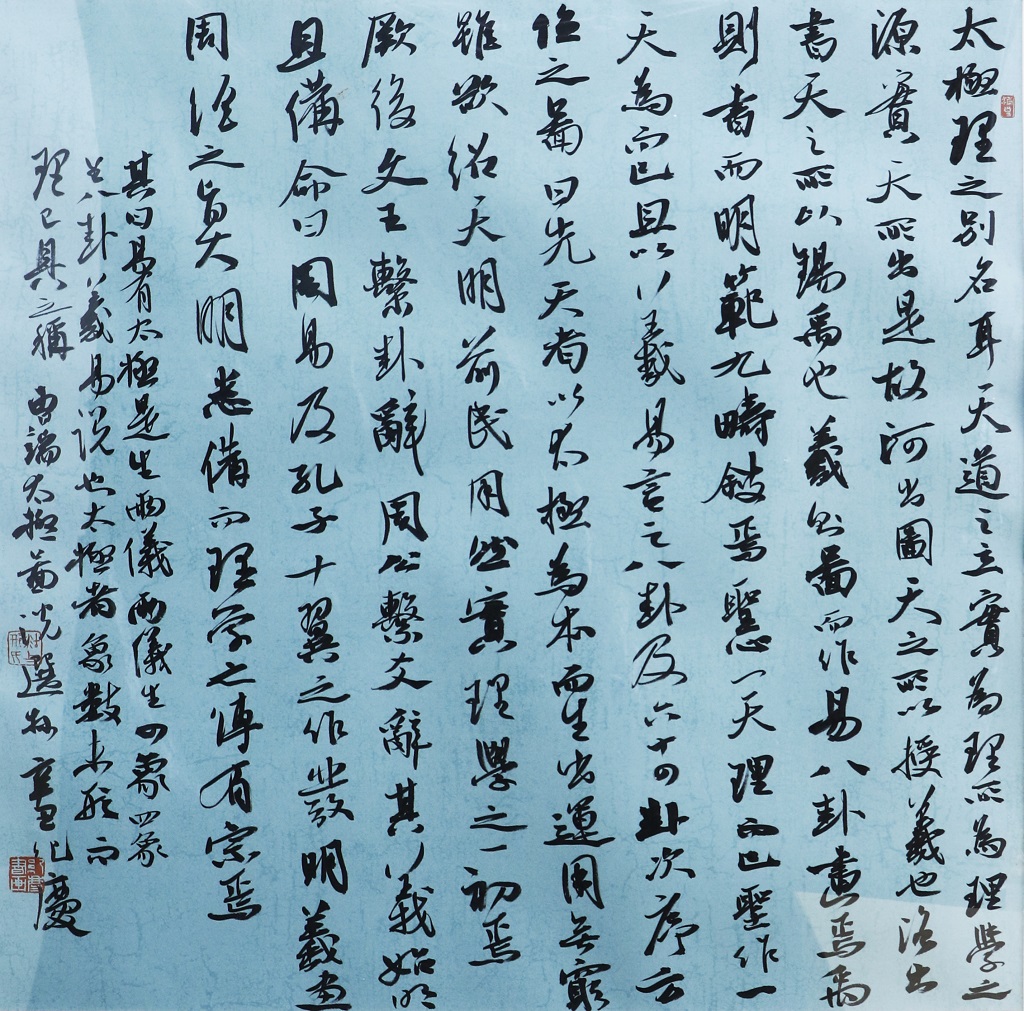 太極理之別名耳天道之立實為理所為理學之
源實天所出是故河出圖天之所以授羲也洛出
書天之所以錫禹也羲則圖而作易八卦畫焉禹
則書而明範九疇敍焉聖心一天理而已聖作一
天為而已且以羲易言之八卦及六十四卦次序方
位之圖曰先天者以太極為本而生出運用無窮
雖欲紹天明前民用然實理學之一初焉
厥後文王繫卦辭周公繫爻辭其義始明
且備命曰周易及孔子十翼之作發明羲畫
周經之旨大明悉備而理學之傳有宗焉
其曰易有太極是生兩儀兩儀生四象四象
生八卦羲易說也太極者象數未形而
理已具之稱 曹端太極圖說 慶